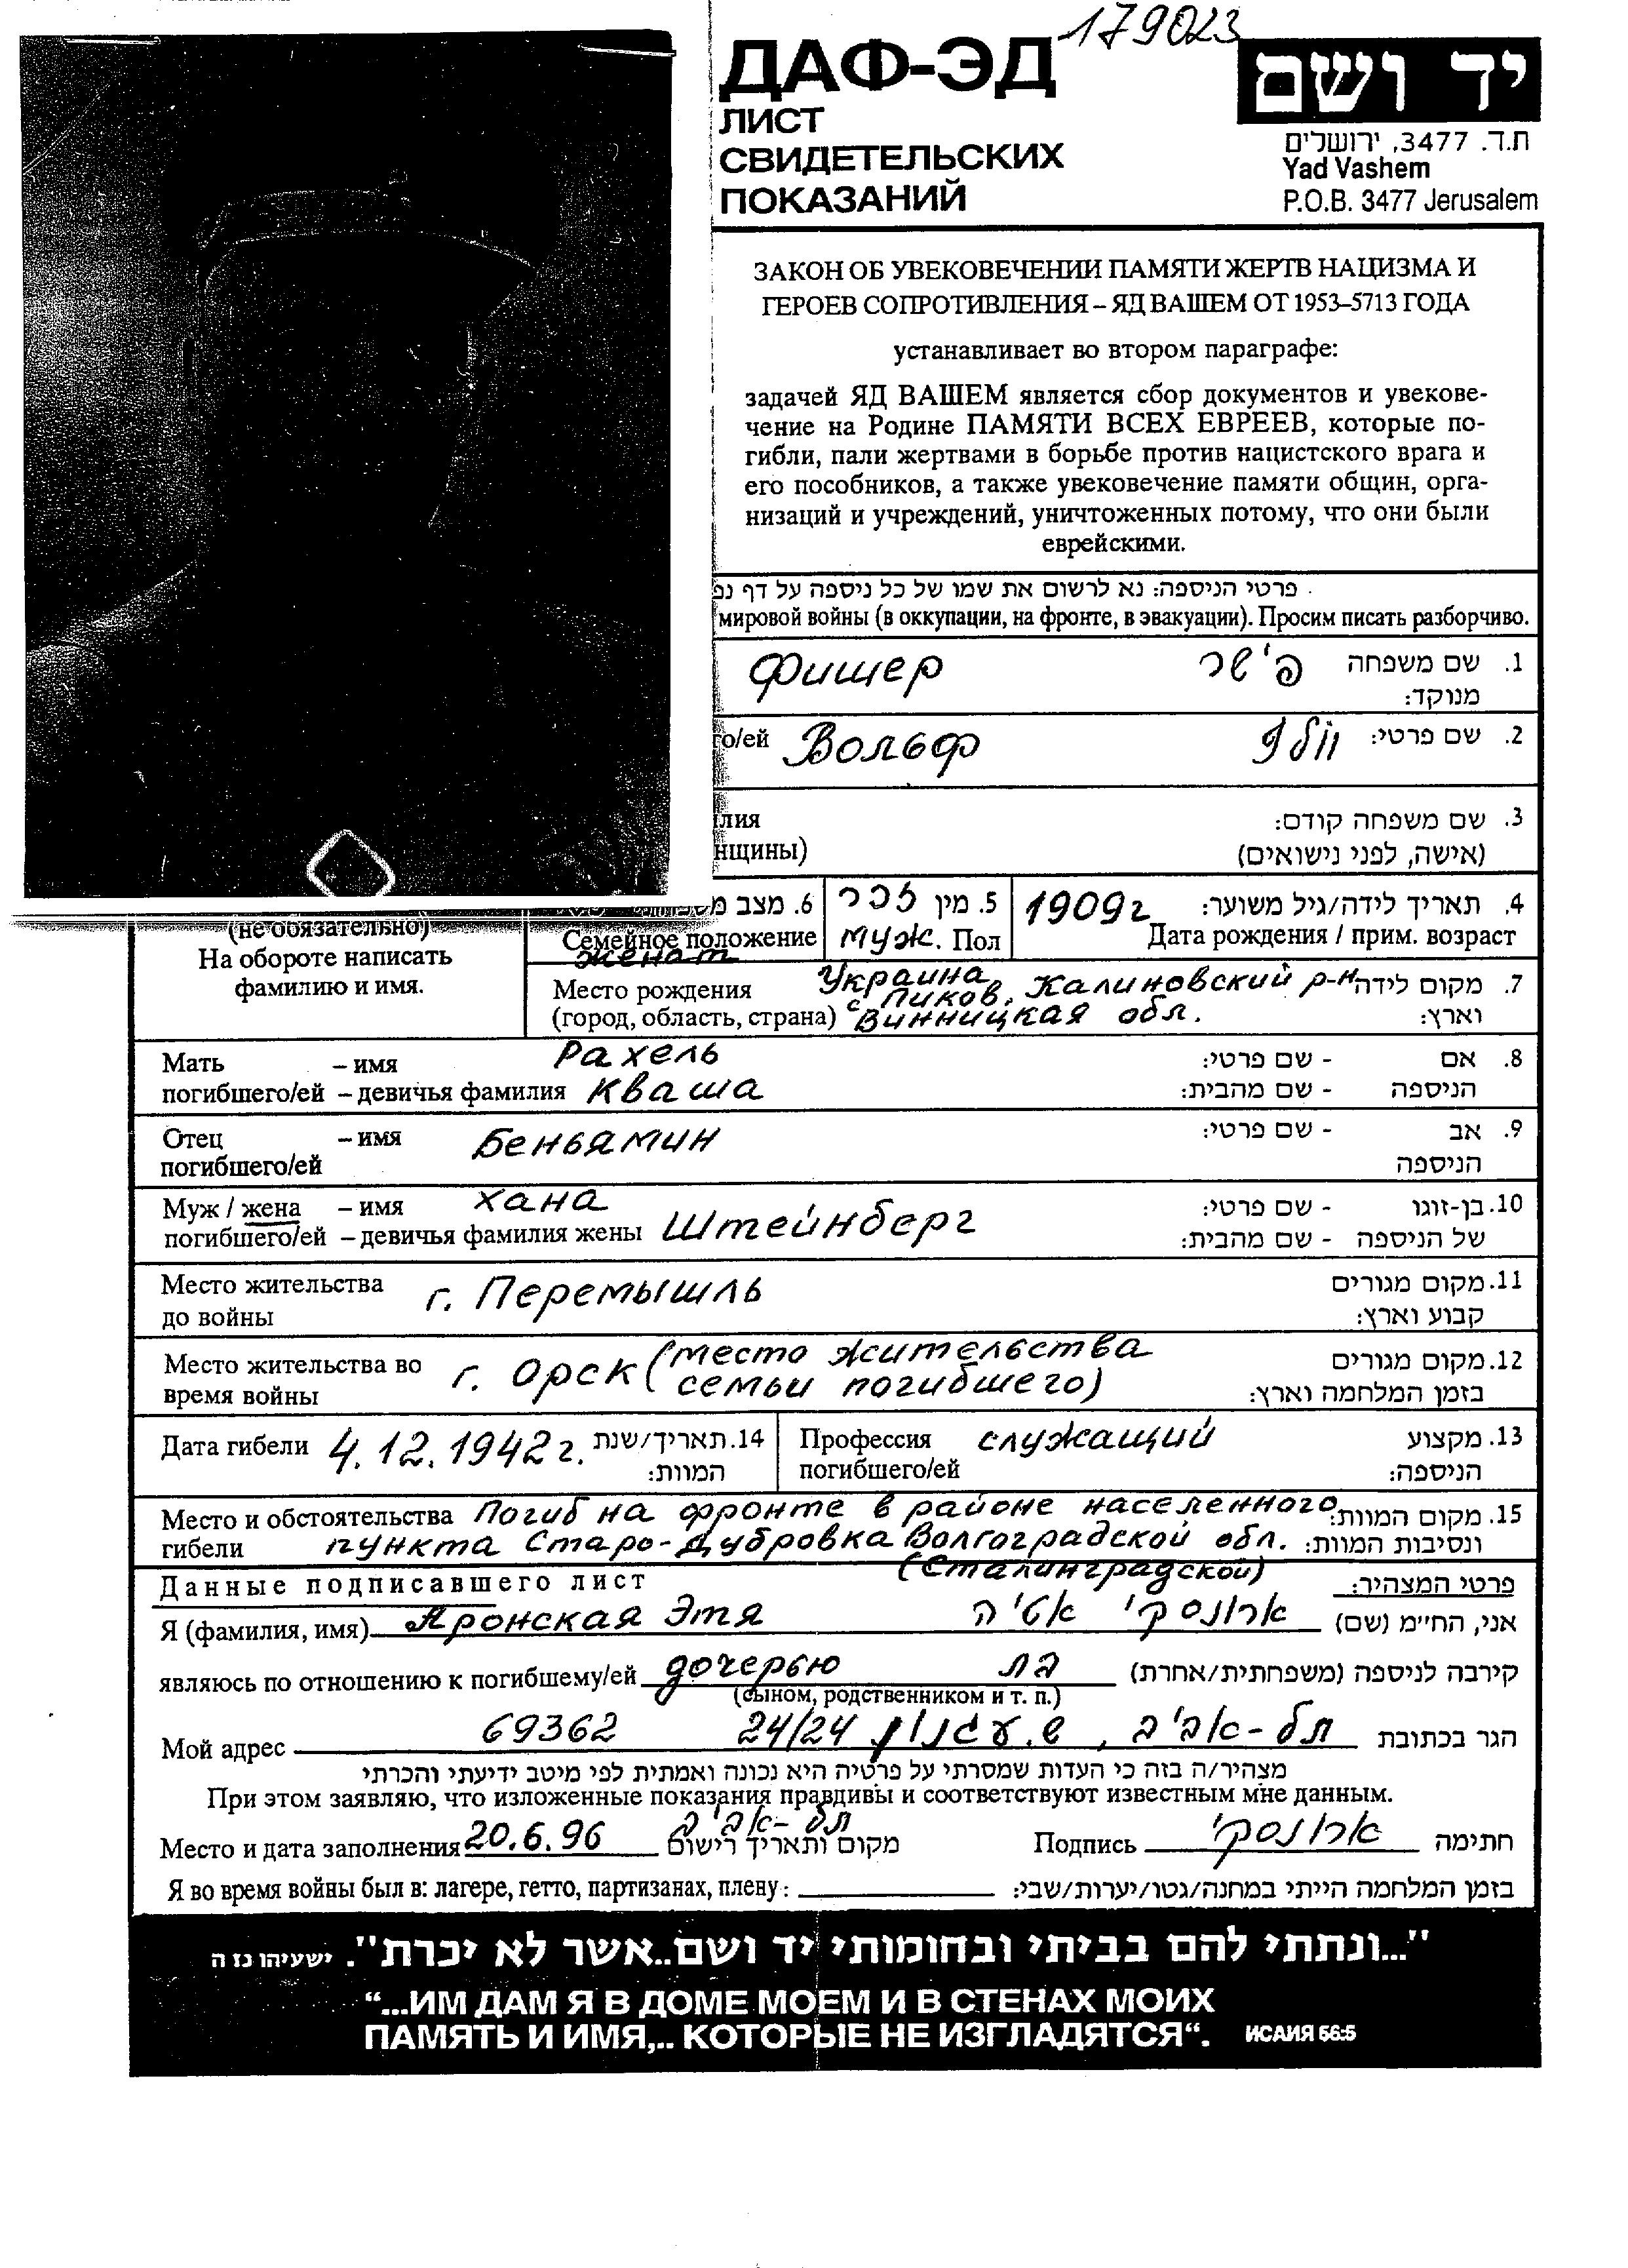 179023
ДАФ-ЭД
ЛИСТ
СВИДЕТЕЛЬСКИХ
ПОКАЗАНИЙ
יד ושם
ת.ד. 3477, ירושלים
Yad Vashem
P.O.B. 3477 Jerusalem
ЗАКОН ОБ УВЕКОВЕЧЕНИИ ПАМЯТИ ЖЕРТВ НАЦИЗМА И
ГЕРОЕВ СОПРОТИВЛЕНИЯ – ЯД ВАШЕМ ОТ 1953–5713 ГОДА
устанавливает во втором параграфе:
задачей ЯД ВАШЕМ является сбор документов и увекове-
чение на Родине ПАМЯТИ ВСЕХ ЕВРЕЕВ, которые по-
гибли, пали жертвами в борьбе против нацистского врага и
его пособников, а также увековечение памяти общин, орга-
низаций и учреждений, уничтоженных потому, что они были
еврейскими.
פרטי הניספה: נא לרשום את שמו של כל ניספה על דף נפ
мировой войны (в оккупации, на фронте, в эвакуации). Просим писать разборчиво.
Фишер פישר 1. שם משפחה
מנוקד:
го/ей Вольф וולף 2. שם פרטי:
лия 3. שם משפחה קודם:
нщины) (אישה, לפני נישואים)
6. מצב 5. מין זכר 1909г 4. תאריך לידה/גיל משוער:
(не обязательно) Семейное положение муж. Пол Дата рождения / прим. возраст
женат
На обороте написать
фамилию и имя.
Место рождения Украина 7. מקום לידה
с. Пиков, Калиновский р-н
(город, область, страна) Винницкая обл. וארץ:
Мать – имя Рахель 8. אם - שם פרטי:
погибшего/ей – девичья фамилия Кваша הניספה - שם מהבית:
Отец – имя Беньямин 9. אב - שם פרטי:
погибшего/ей הניספה
Муж / жена – имя Хана 10. בן-זוגו - שם פרטי:
погибшего/ей – девичья фамилия жены Штейнберг של הניספה - שם מהבית:
Место жительства г. Перемышль 11. מקום מגורים
до войны קבוע וארץ:
Место жительства во г. Орск (место жительства 12. מקום מגורים
время войны семьи погибшего) בזמן המלחמה וארץ:
Дата гибели 4.12.1942г. 14. תאריך/שנת Профессия служащий 13. מקצוע
המוות: погибшего/ей הניספה:
Место и обстоятельства Погиб на фронте в районе населенного 15. מקום המוות:
гибели пункта Старо-Дубровка Волгоградской обл. ונסיבות המוות:
(Сталинградской)
Данные подписавшего лист פרטי המצהיר:
Я (фамилия, имя) Аронская Этя ארונסקי אטיה אני, החי״מ (שם)
являюсь по отношению к погибшему/ей дочерью בת קירבה לניספה (משפחתית/אחרת)
(сыном, родственником и т. п.)
Мой адрес 69362 תל-אביב, ש. עגנון 24/24 הגר בכתובת
מצהיר/ה בזה כי העדות שמסרתי על פרטיה היא נכונה ואמתית לפי מיטב ידיעתי והכרתי
При этом заявляю, что изложенные показания правдивы и соответствуют известным мне данным.
תל-אביב
Место и дата заполнения 20.6.96 מקום ותאריך רישום Подпись ארונסקי חתימה
Я во время войны был в: лагере, гетто, партизанах, плену: בזמן המלחמה הייתי במחנה/גטו/יערות/שבי:
"...ונתתי להם בביתי ובחומותי יד ושם..אשר לא יכרת". ישעיהו נז ה
“...ИМ ДАМ Я В ДОМЕ МОЕМ И В СТЕНАХ МОИХ
ПАМЯТЬ И ИМЯ,.. КОТОРЫЕ НЕ ИЗГЛАДЯТСЯ“. ИСАИЯ 56:5